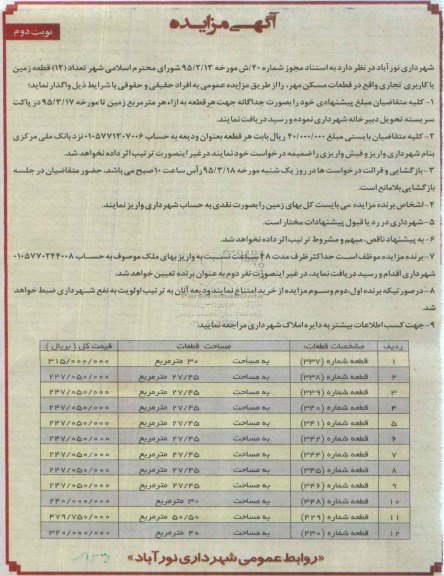 آگهی مزایده
نوبت دوم
شهرداری نورآباد در نظر دارد به استناد مجوز شماره ۴۰/ش مورخه ۹۵/۲/۱۳ شورای محترم اسلامی شهر تعداد (۱۲) قطعه زمین
با کاربری تجاری واقع در قطعات مسکن مهر، را از طریق مزایده عمومی به افراد حقیقی و حقوقی با شرایط ذیل واگذار نماید؛
۱- کلیه متقاضیان مبلغ پیشنهادی خود را بصورت جداگانه جهت هر قطعه به ازاء هر متر مربع زمین تا مورخه ۹۵/۳/۱۷ در پاکت
سر بسته تحویل دبیرخانه شهرداری نموده و رسید دریافت نمایند.
۲- کلیه متقاضیان بایستی مبلغ ۴۰/۰۰۰/۰۰۰ ریال بابت هر قطعه بعنوان ودیعه به حساب ۰۱۰۵۷۷۱۳۰۷۰۰۶ نزد بانک ملی مرکزی
بنام شهرداری واریز و فیش واریزی را ضمیمه درخواست خود نمایند در غیر اینصورت ترتیب اثر داده نخواهد شد.
۳- بازگشایی و قرائت درخواست ها در روز یک شنبه مورخه ۹۵/۳/۱۸ رأس ساعت ۱۰ صبح می باشد، حضور متقاضیان در جلسه
بازگشایی بلامانع است.
۴- اشخاص برنده مزایده می بایست کل بهای زمین را بصورت نقدی به حساب شهرداری واریز نمایند.
۵- شهرداری در رد یا قبول پیشنهادات مختار است.
۶- به پیشنهاد ناقص، مبهم و مشروط ترتیب اثر داده نخواهد شد.
۷- برنده مزایده موظف است حداکثر ظرف مدت ۴۸ ساعت نسبت به واریز بهای ملک موصوف به حساب ۰۱۰۵۷۷۰۲۴۴۰۰۸
شهرداری اقدام و رسید دریافت نماید، در غیر اینصورت نفر دوم به عنوان برنده تعیین خواهد شد.
۸- در صورتیکه برنده اول، دوم و سوم مزایده از خرید امتناع نمایند ودیعه آنان به ترتیب اولویت به نفع شهرداری ضبط خواهد
شد.
۹- جهت کسب اطلاعات بیشتر به دایره املاک شهرداری مراجعه نمایید.
ردیف مشخصات قطعات؛ مساحت قطعات قیمت کل (بریال)
۱ قطعه شماره (۳۳۷) به مساحت ۳۰ مترمربع ۳۱۵/۰۰۰/۰۰۰
۲ قطعه شماره (۳۳۸) به مساحت ۲۷/۴۵ مترمربع ۲۴۷/۰۵۰/۰۰۰
۳ قطعه شماره (۳۳۹) به مساحت ۲۷/۴۵ مترمربع ۲۴۷/۰۵۰/۰۰۰
۴ قطعه شماره (۳۴۰) به مساحت ۲۷/۴۵ مترمربع ۲۴۷/۰۵۰/۰۰۰
۵ قطعه شماره (۳۴۱) به مساحت ۲۷/۴۵ مترمربع ۲۴۷/۰۵۰/۰۰۰
۶ قطعه شماره (۳۴۲) به مساحت ۲۷/۴۵ مترمربع ۲۴۷/۰۵۰/۰۰۰
۷ قطعه شماره (۳۴۴) به مساحت ۲۷/۴۵ مترمربع ۲۴۷/۰۵۰/۰۰۰
۸ قطعه شماره (۳۴۵) به مساحت ۲۷/۴۵ مترمربع ۲۴۷/۰۵۰/۰۰۰
۹ قطعه شماره (۳۴۶) به مساحت ۲۷/۴۵ مترمربع ۲۴۷/۰۵۰/۰۰۰
۱۰ قطعه شماره (۳۴۸) به مساحت ۳۰ مترمربع ۲۴۰/۰۰۰/۰۰۰
۱۱ قطعه شماره (۴۲۹) به مساحت ۵۰/۵۰ مترمربع ۴۷۹/۷۵۰/۰۰۰
۱۲ قطعه شماره (۴۳۰) به مساحت ۴۰ مترمربع ۳۲۰/۰۰۰/۰۰۰
«روابط عمومی شهرداری نورآباد»